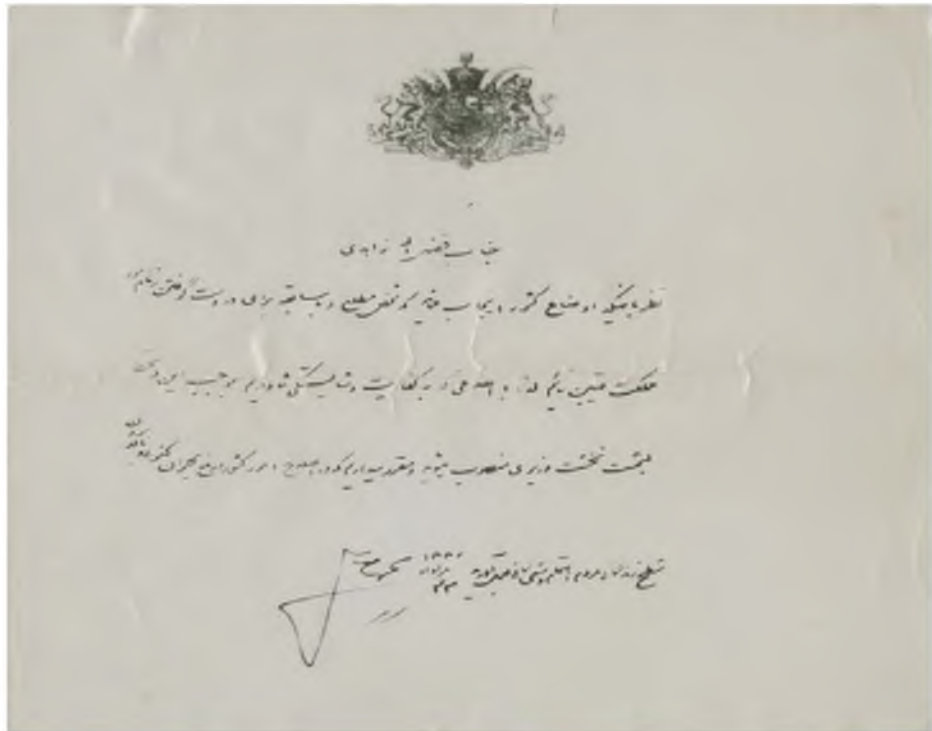 جناب فضل الله زاهدی
نظر باینکه اوضاع کشور ایجاب مینماید که شخص مطلع و با سابقه برای در دست گرفتن زمام امور
مملکت تعیین نمائیم لذا با اطلاعی که به کفایت و شایستگی شما داریم بموجب این دستخط
بسمت نخست وزیری منصوب میشوید و مقرر میداریم که در اصلاح امور کشور و رفع بحران کنونی و بالا بردن
سطح زندگانی مردم اهتمام
۱۳۳۲
مرداد
۲۲